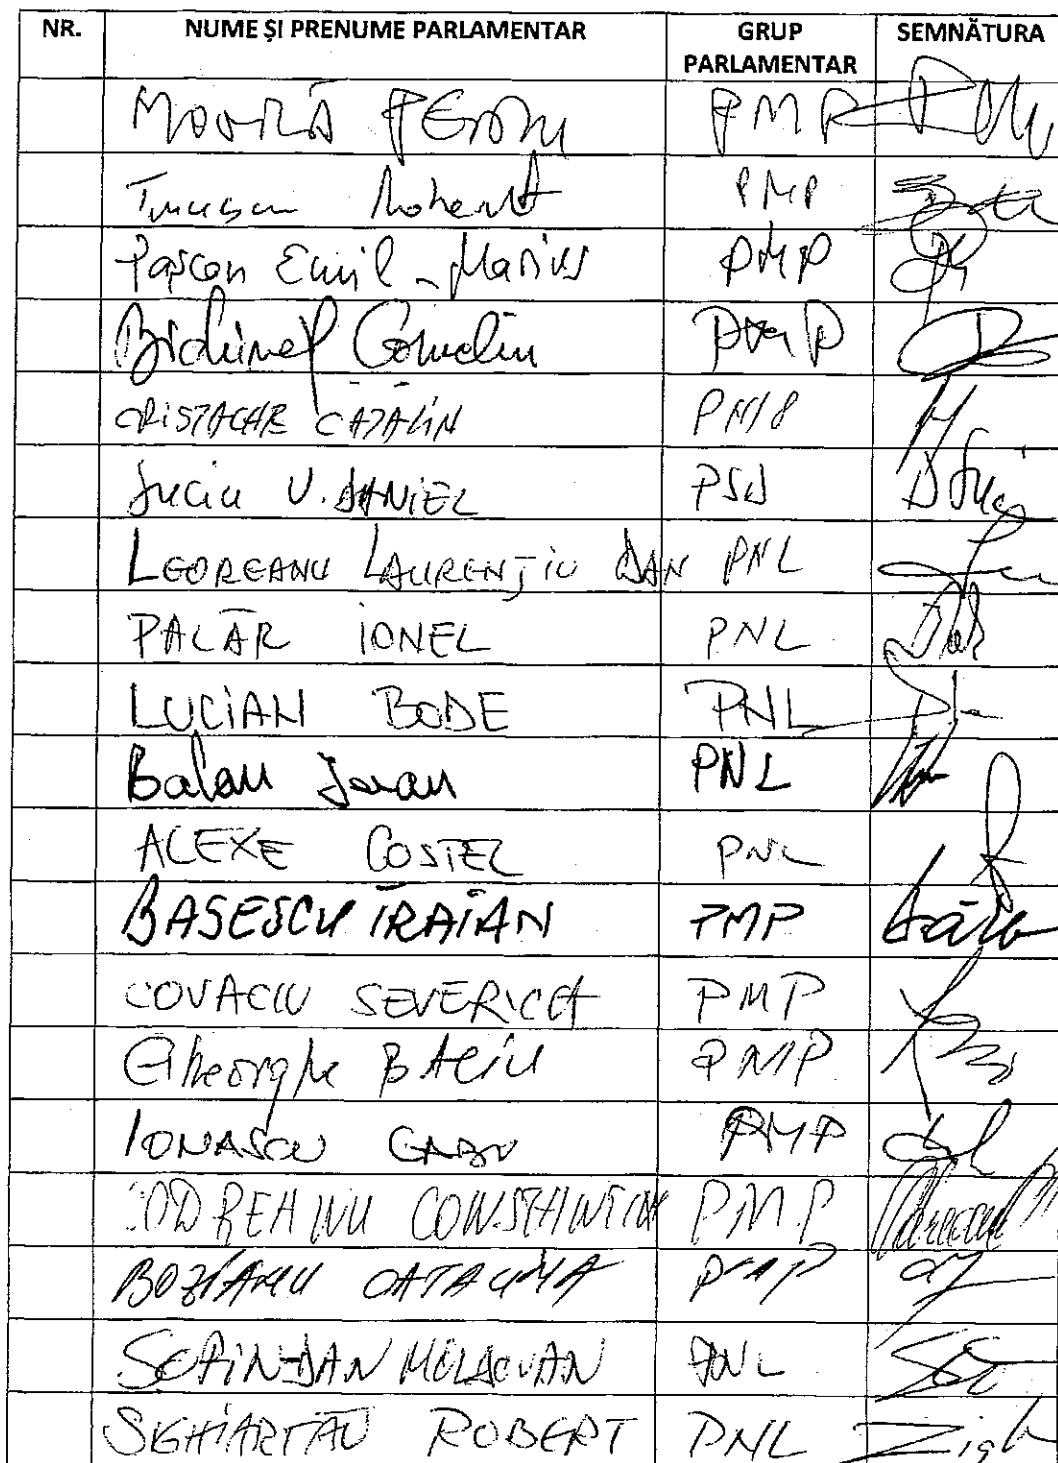 NR. NUME ȘI PRENUME PARLAMENTAR GRUP PARLAMENTAR SEMNĂTURA
MOVILĂ PETRU PMP
Turcescu Robert PMP
Pașcan Emil-Marius PMP
Bichineț Corneliu PMP
CRISTACHE CĂTĂLIN PMP
Suciu V. DANIEL PSD
LEOREANU LAURENȚIU DAN PNL
PALĂR IONEL PNL
LUCIAN BODE PNL
Balan Ioan PNL
ALEXE COSTEL PNL
BASESCU TRAIAN PMP
COVACIU SEVERICA PMP
Gheorghe BACIU PMP
IONASCU GABI PMP
CODREANU CONSTANTIN PMP
BOZIANU CATALINA PMP
SORIN-DAN MOLDOVAN PNL
SIGHIARTĂU ROBERT PNL